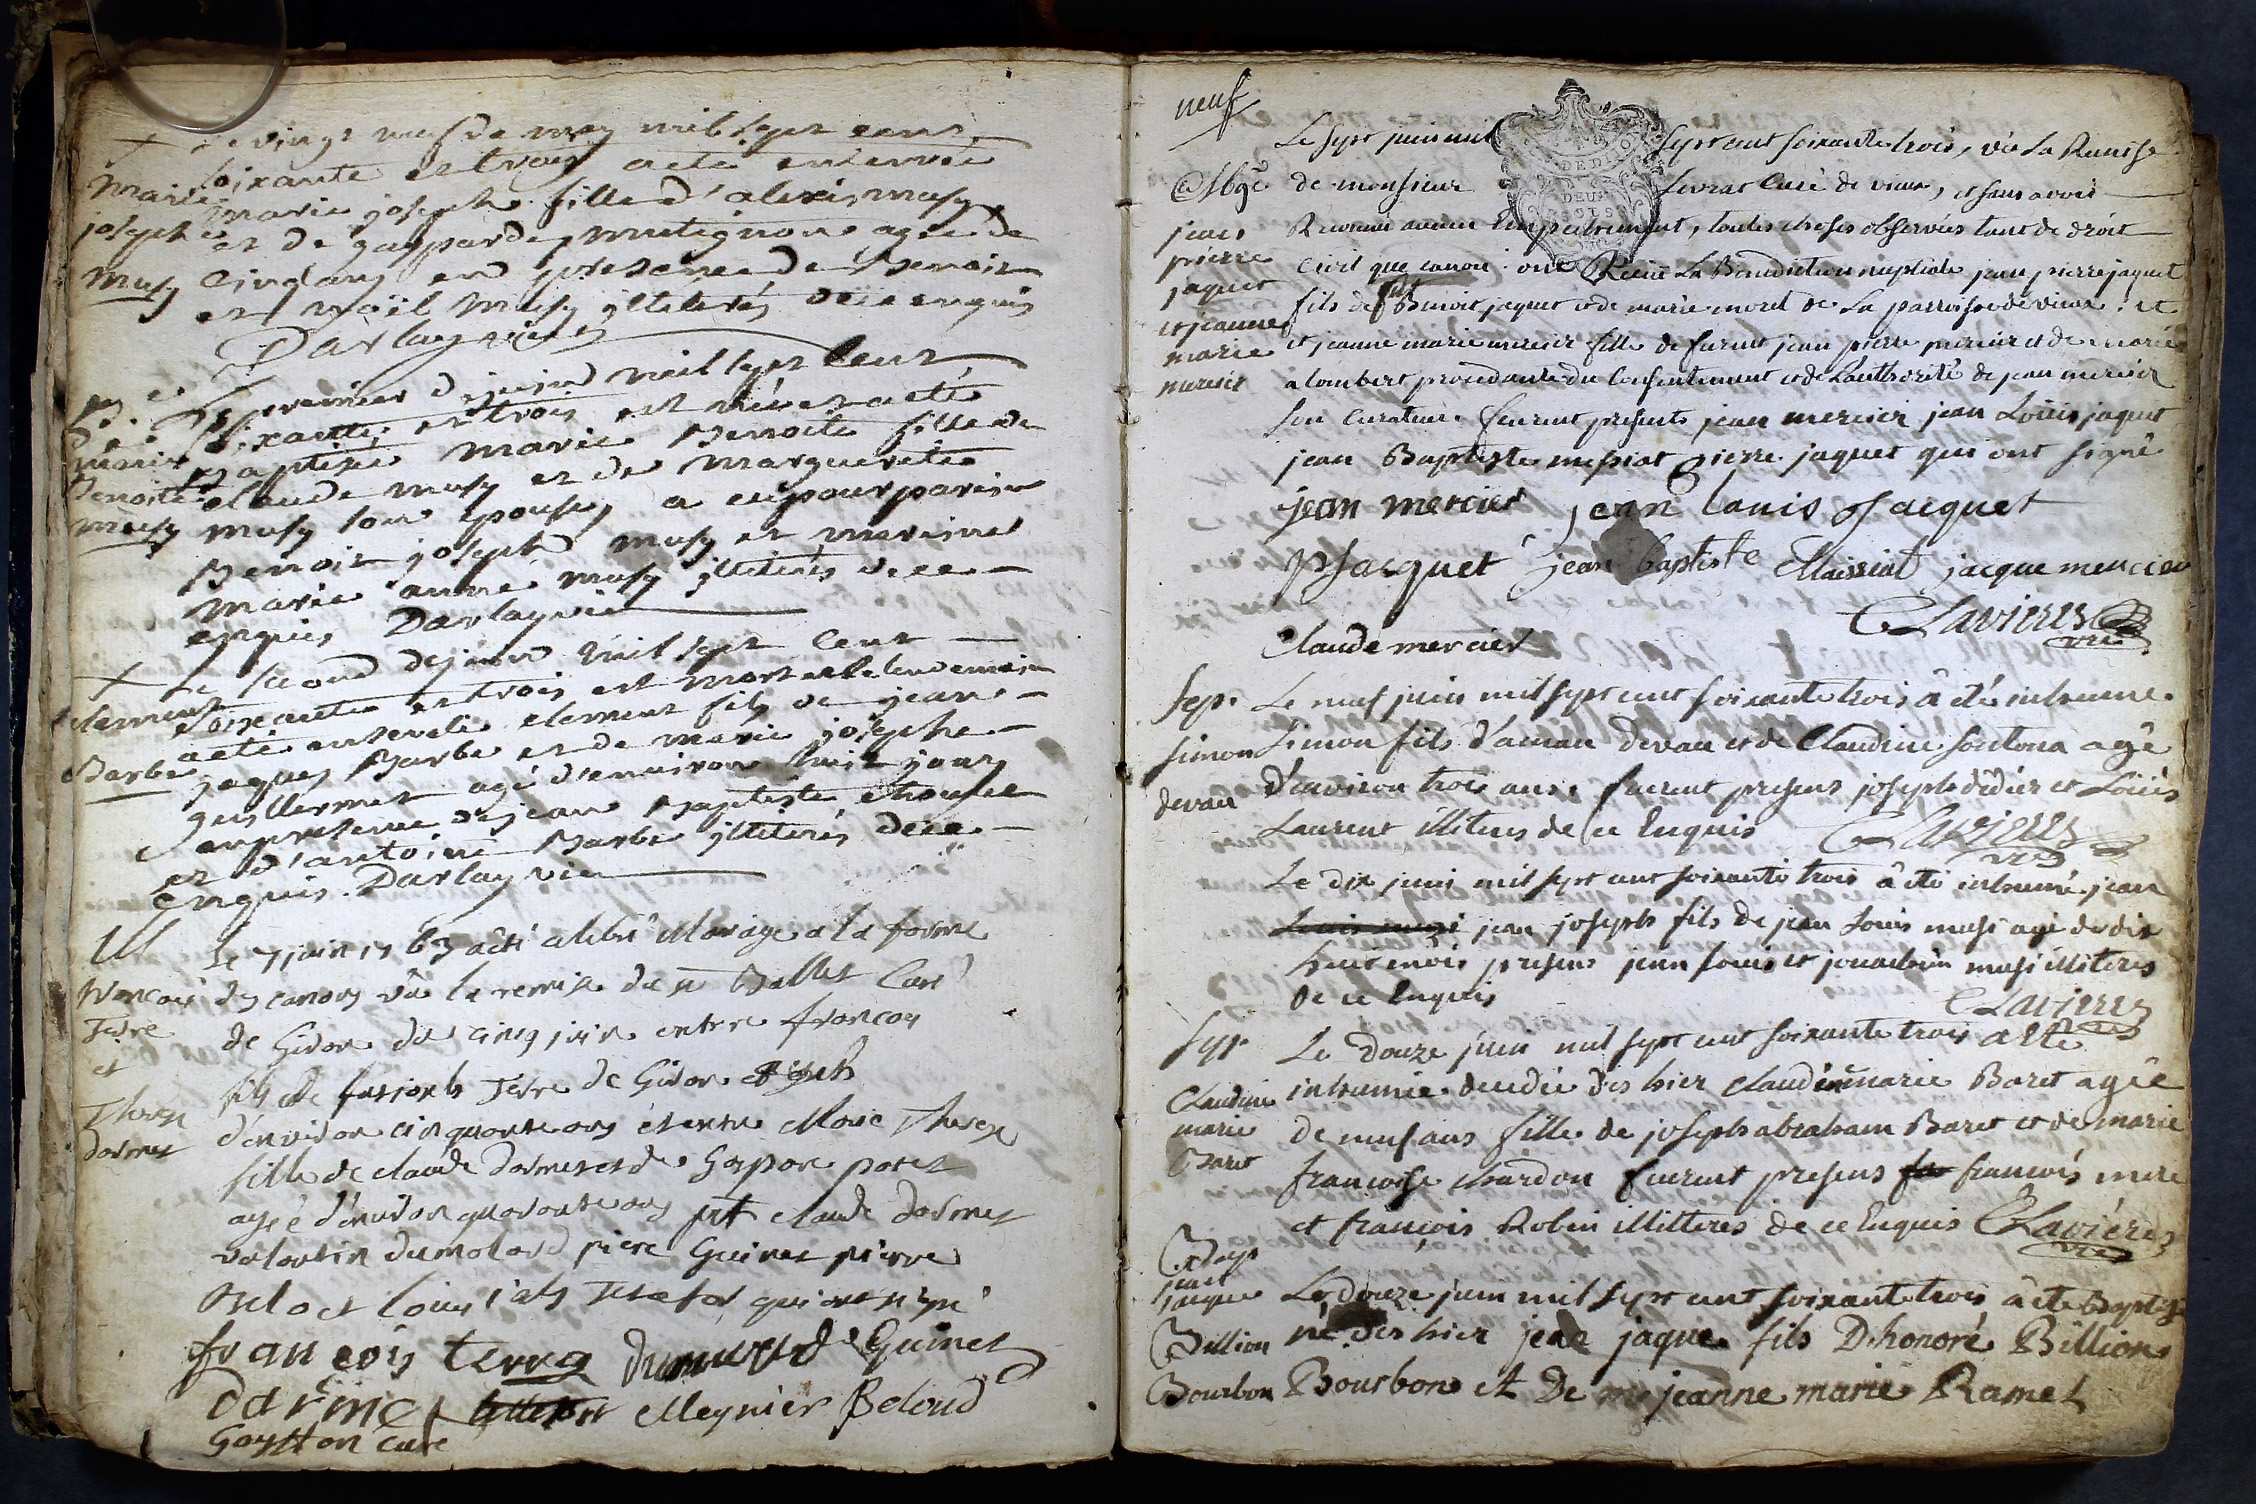 Le vingt neuf de may mil sept cent
soixante et trois a eté enterrée
Marie marie joseph fille d'alexis musy
josephe et de gasparde mutignon agée de
musy cinq ans en presence de Benoit
et noël musy illiterés de ce enquis
Darlay vic
Le premier de juin mil sept cent
soixante et trois est née et a eté
marie Baptisée marie Benoite fille de
Benoite claude musy et de marguerite
musy musy son epouse, a eu pour parein
Benoit joseph musy et mareine
marie anne musy illiterés de ce
enquis Darlay vic
Le second de juin mil sept cent
clement soixante et trois est mort et le lendemain
a eté enseveli clement fils de jean
Barbe jaques Barbe et de marie josephe
guillermet agé d'environ huit jours
en presence de jean Baptiste
et d'antoine Barbe illiterés de ce
enquis Darlay vic
M Le 7 juin 1763 a été celebré Mariage a la forme
francois des canons vû la remise du sr Ballet Curé
Terre de Giron du cinq juin entre francois
et fils de fut joseph Terre de Giron
Therese d'environ cinquante ans et entre Marie Therese
dormet fille de claude dormet et de Gaspare poret
agée d'environ quarante ans prt claude dormet
valentin dumolard piere Guinet pierre
Belo et louis qui ont signé
francois terra dumolard Guinet
darmet Meynier Beloud
Gaytton Curé
neuf
DEUX
SOLS
Le sept juin mil sept cent soixante trois, vû la Remise
de monsieur Livrat Curé de vieux, et sans avoir
jean Reconnu aucun Empechement, toutes choses observées tant de droit
pierre civil que canon: ont Recüe La Benediction nuptiale jean pierre jaquet
jaquet fils de fut Benoit jaquet et de marie moret de La parroisse de vieux: et
et jeanne et jeanne marie mercier fille de furent jean pierre mercier et de marie
marie alombert procedante du Consentement et de L'authorité de jean mercier
mercier son Curateur. furent presents jean mercier jean Loüis jaquet
jean Baptiste messiat pierre jaquet qui ont signé
jean mercier jean louis Jacquet
PJacquet jean baptiste Maissiat jacque mercier
CLavieres
vic
Claude mercier
sep. Le neuf juin mil sept cent soixante trois â eté inhumé
simon Simon fils d'aman devau et de Claudine sontona agé
devau d'environ trois ans. furent presens joseph didier et Loüis
Laurent illiteres de ce Enquis CLavieres
vic
Le dix juin mil sept cent soixante trois â eté inhumé jean
jean joseph fils de jean Louis musi agé de dix
huit mois presens jean Louis et joachim musi illiteres
de ce Enquis CLavieres
sep. Le douze juin mil sept cent soixante trois a eté
Claudine inhumée decedée dès hier claudine marie Baret agée
marie de neuf ans fille de joseph abraham Baret et de marie
Baret francoise chardon furent presens francois mere
et françois Robin illitteres de ce Enquis CLavieres
vic
Bap
jean
jaque Le douze juin mil sept cent soixante trois â eté Baptisé
Billion né dès hier jean jaque fils D'honoré Billion
Bourbon Bourbon et De jeanne marie Ramel